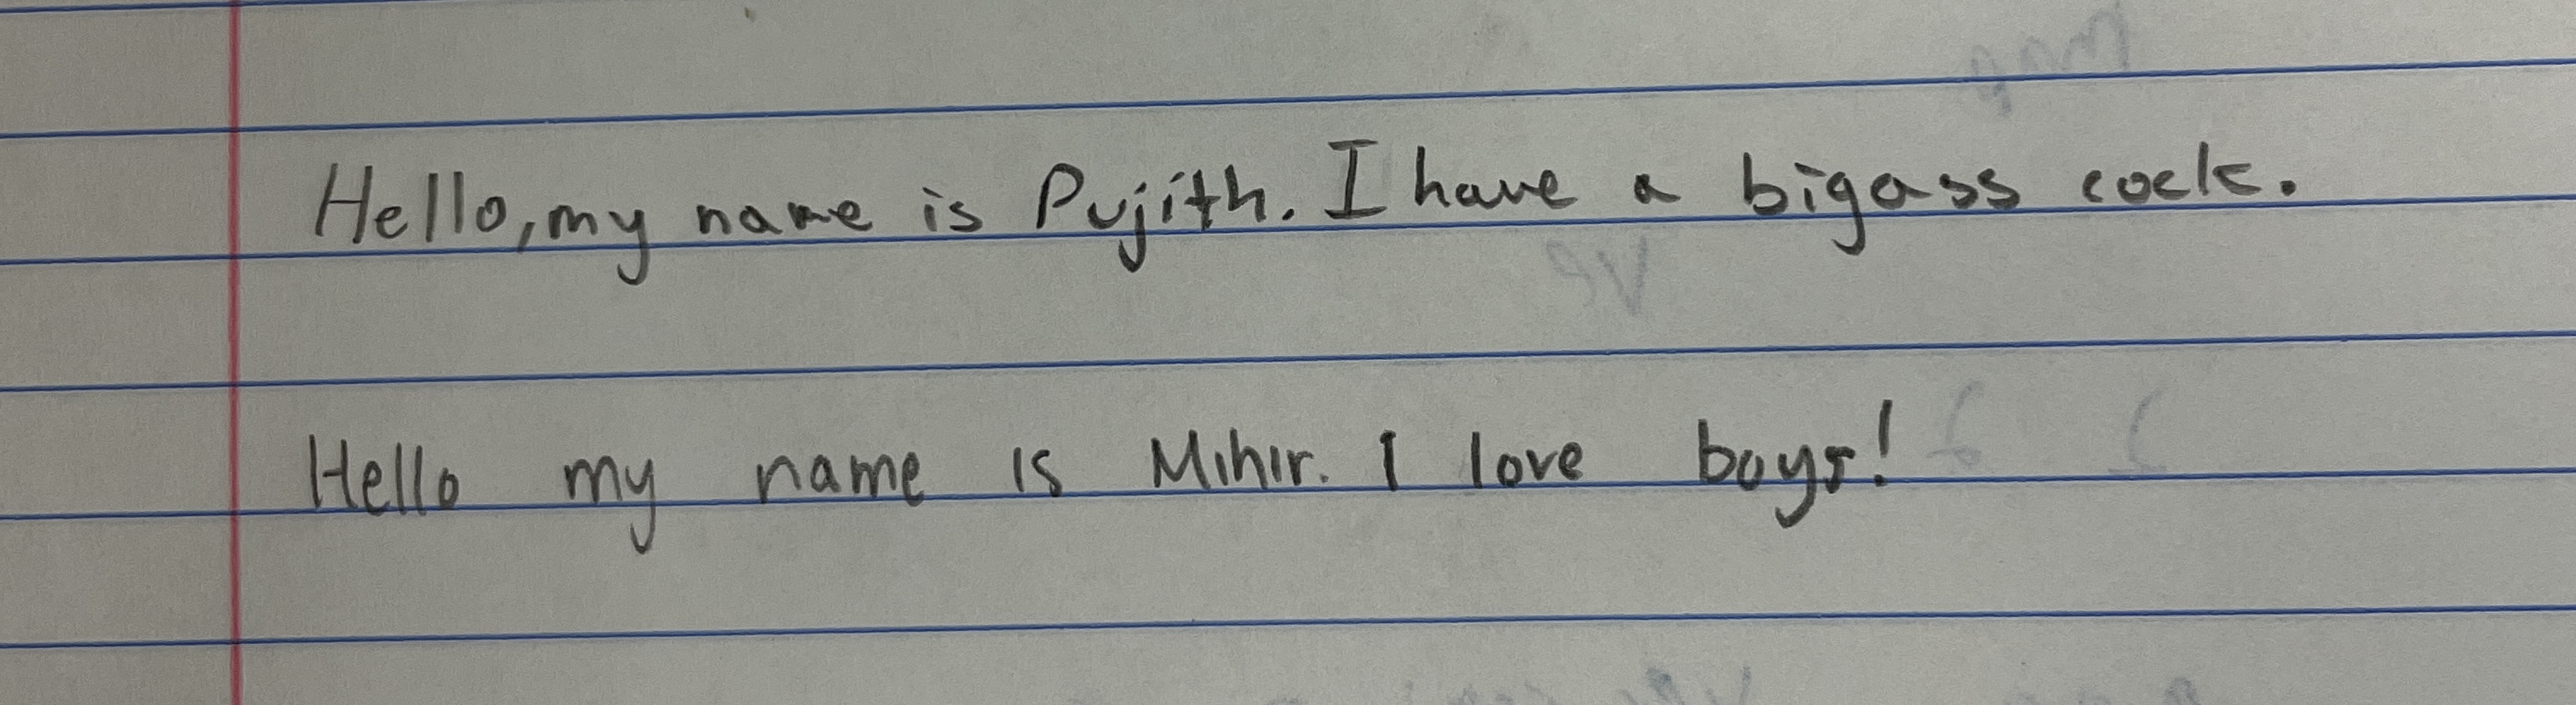 Hello, my name is Pujith. I have a bigass cock.
Hello my name is Mihir. I love boys!